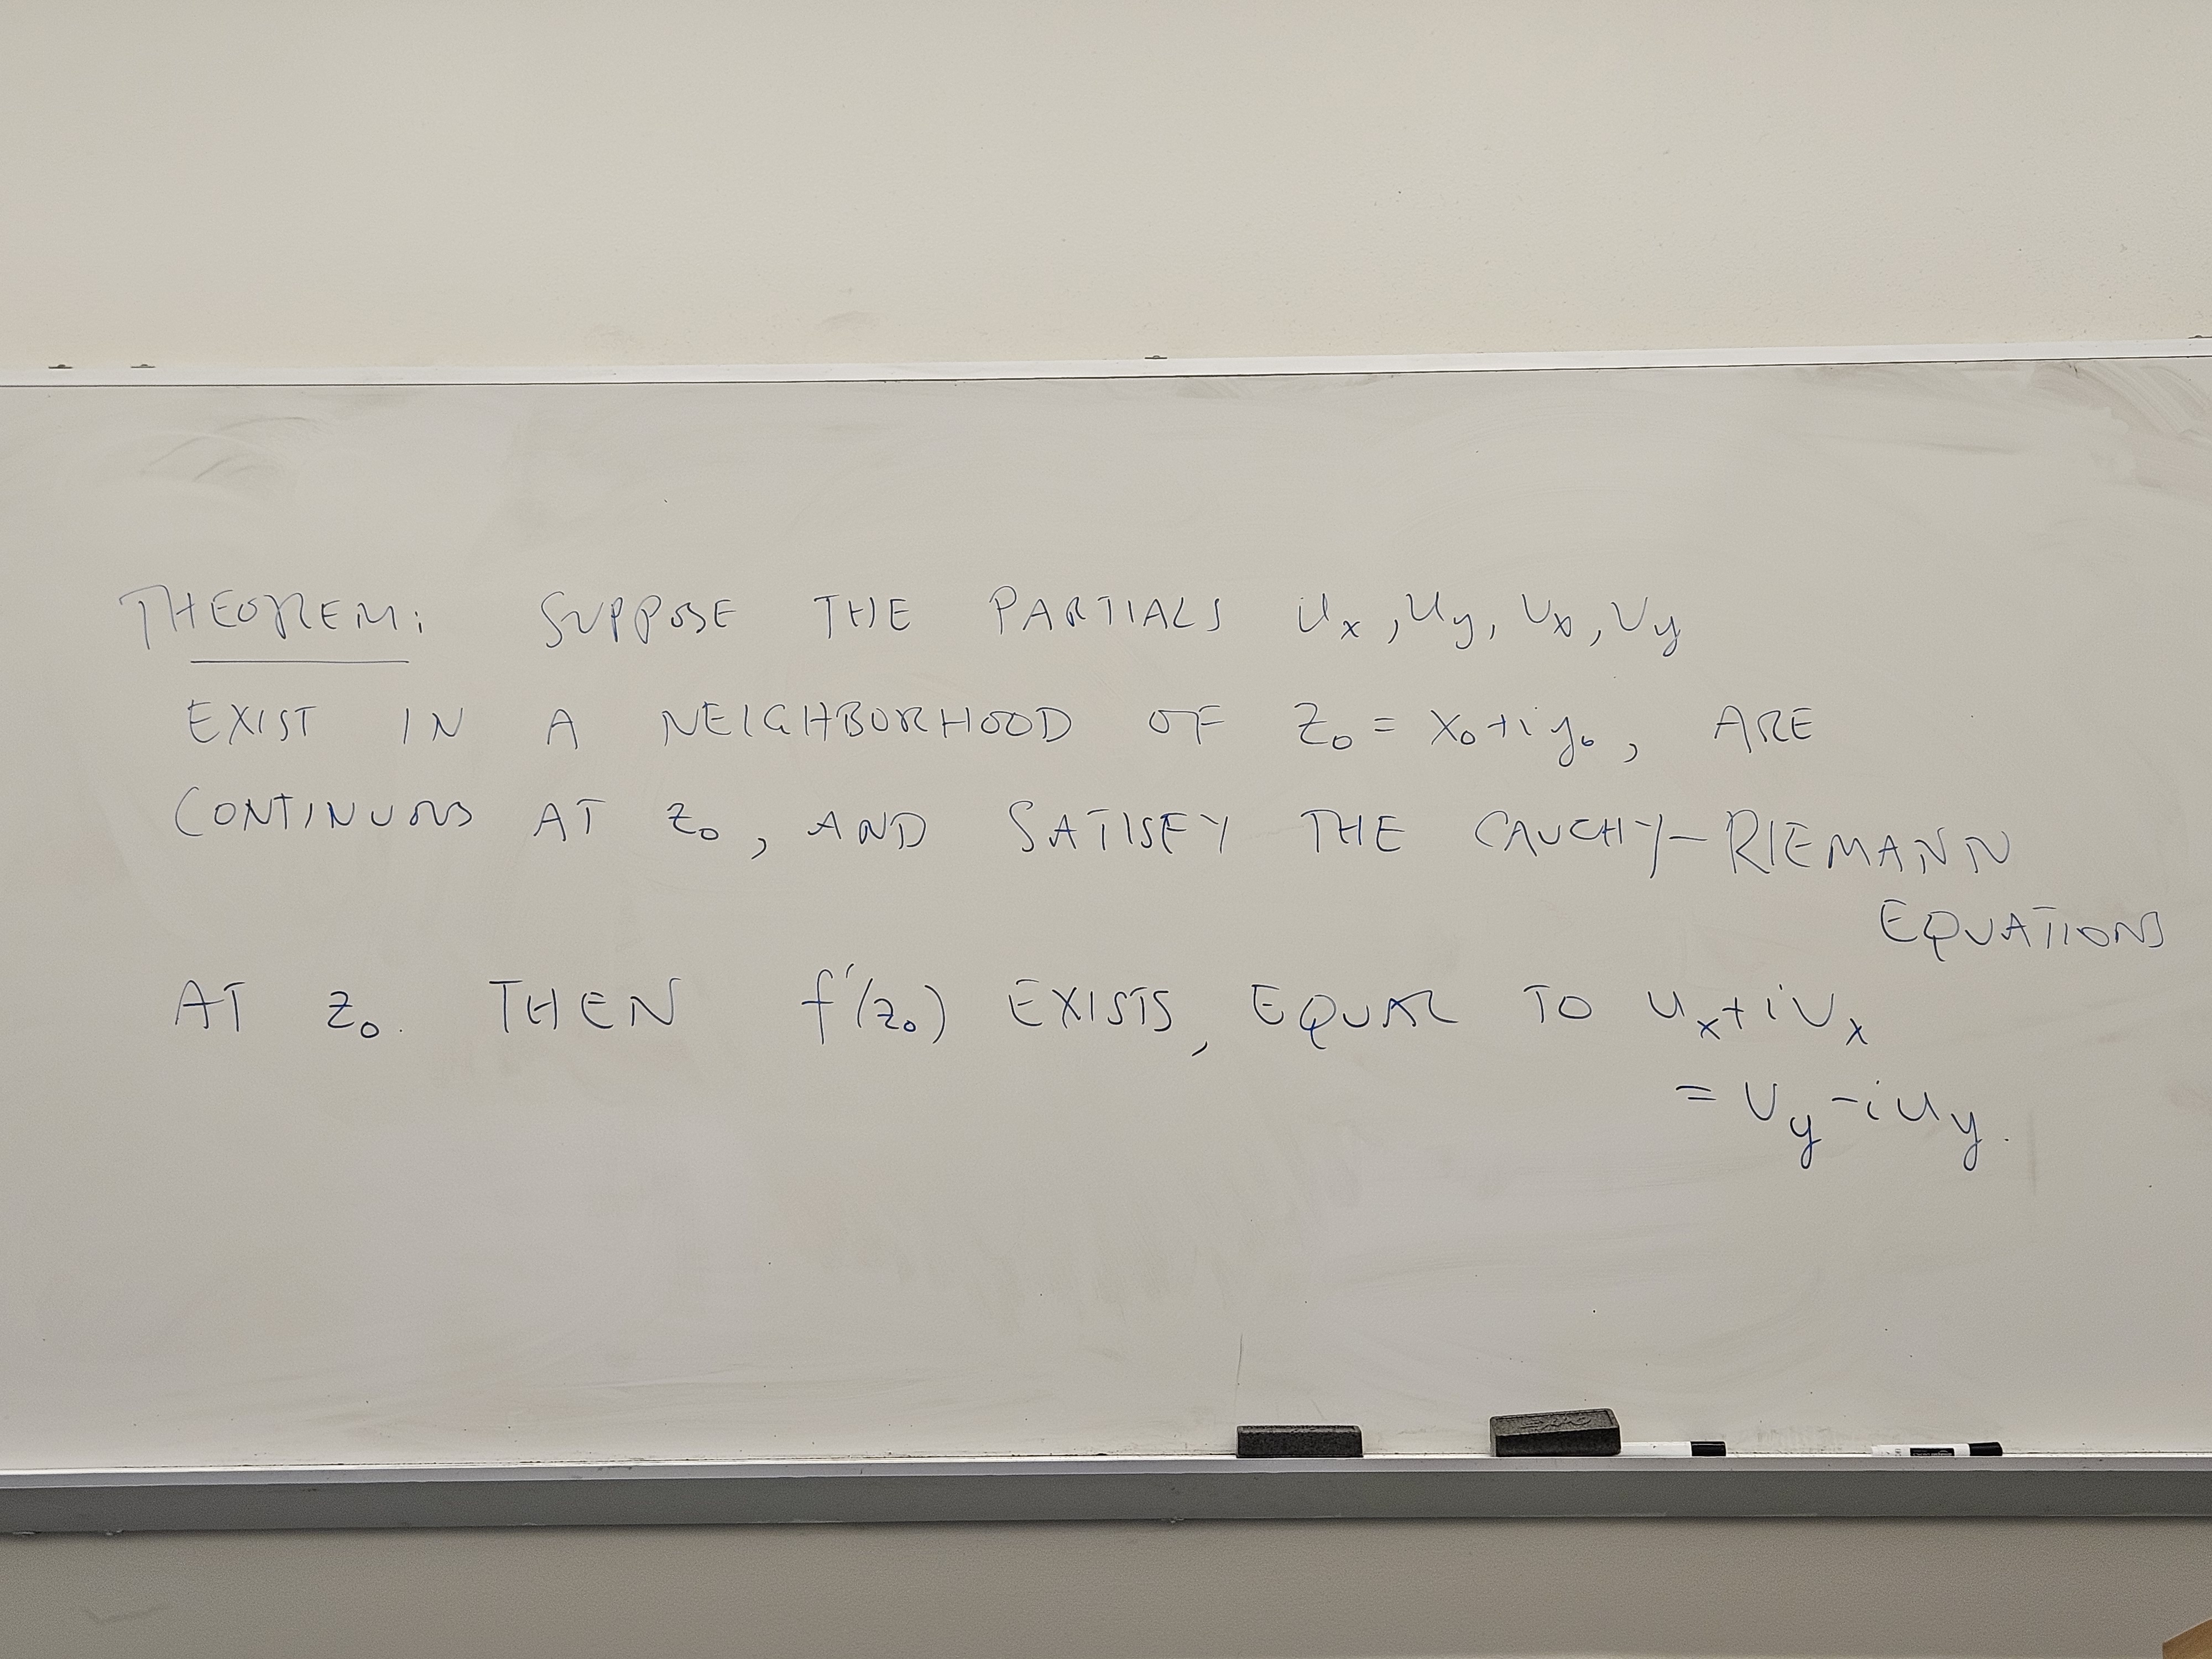 THEOREM: SUPPOSE THE PARTIALS u_x, u_y, v_x, v_y
EXIST IN A NEIGHBORHOOD OF z_0 = x_0 + i y_0, ARE
CONTINUOUS AT z_0, AND SATISFY THE CAUCHY-RIEMANN
EQUATIONS
AT z_0. THEN f'(z_0) EXISTS, EQUAL TO u_x + i v_x
= v_y - i u_y.
EXPO